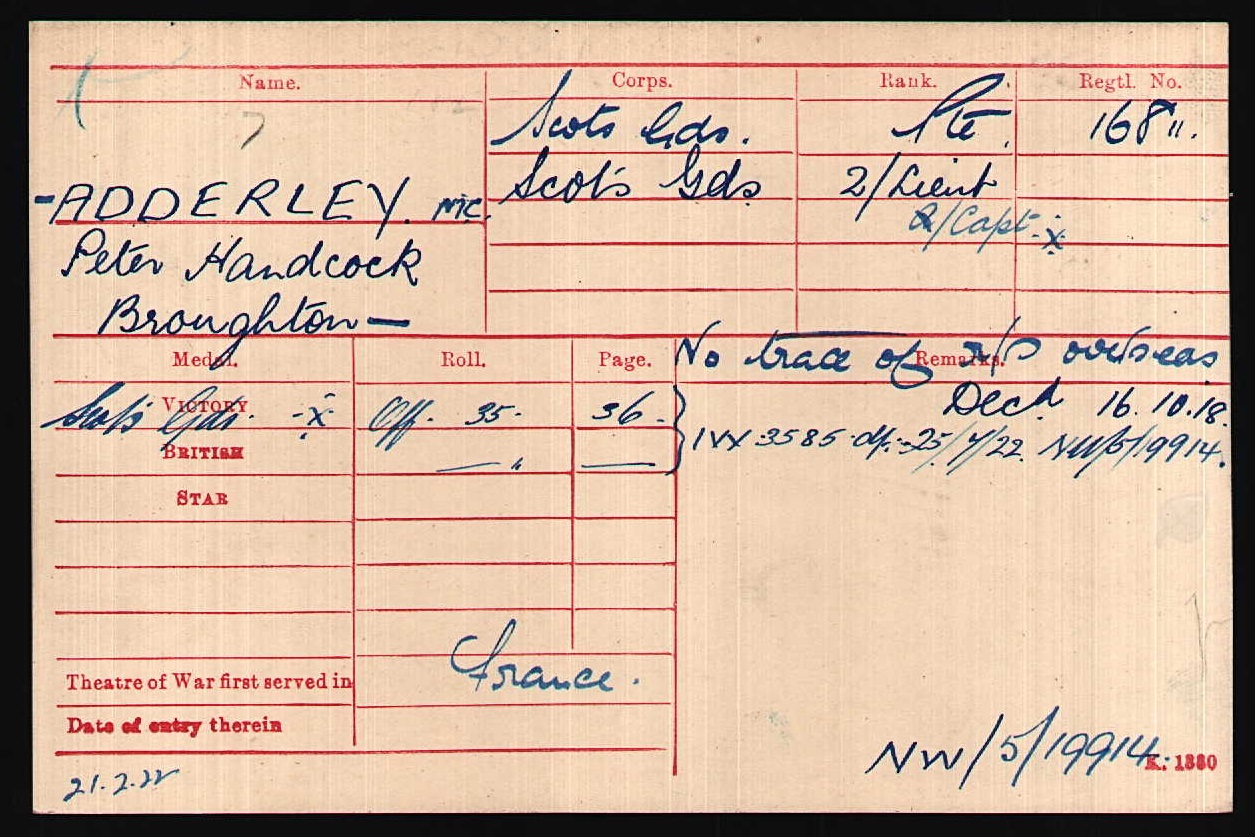 Name. Corps. Rank. Regtl. No.
Scots Gds. Pte. 168".
-ADDERLEY. MC. Scots Gds 2/Lieut
A/Capt -x
Peter Handcock
Broughton —
Medal. Roll. Page. Remarks.
No trace of r/s overseas
VICTORY Scots Gds. -x Off. 35. 36. Decd 16.10.18.
BRITISH — " — IVX 3585 df. 25/4/22. NW/5/19914.
STAR
Theatre of War first served in France.
Date of entry therein
NW/5/19914 K. 1380
21.2.22